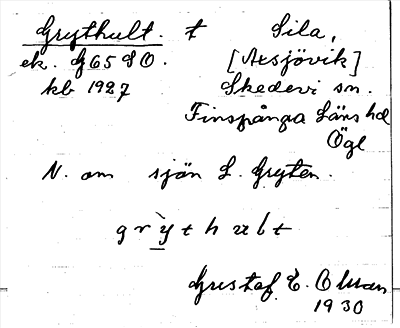 Grythult. t Sila,
ek. G 65 SO. [Axsjövik]
kb 1927 Skedevi sn.
Finspånga Läns hd
Ögl
N. om sjön L. Gryten.
grỳthult
Gustaf E. Olsson
1930